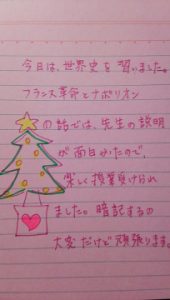 今日は、世界史を習いました。
フランス革命とナポリオン
の話では、先生の説明
が面白かたので、
楽しく授業受けられ
ました。暗記するの
大変だけど頑張ります。